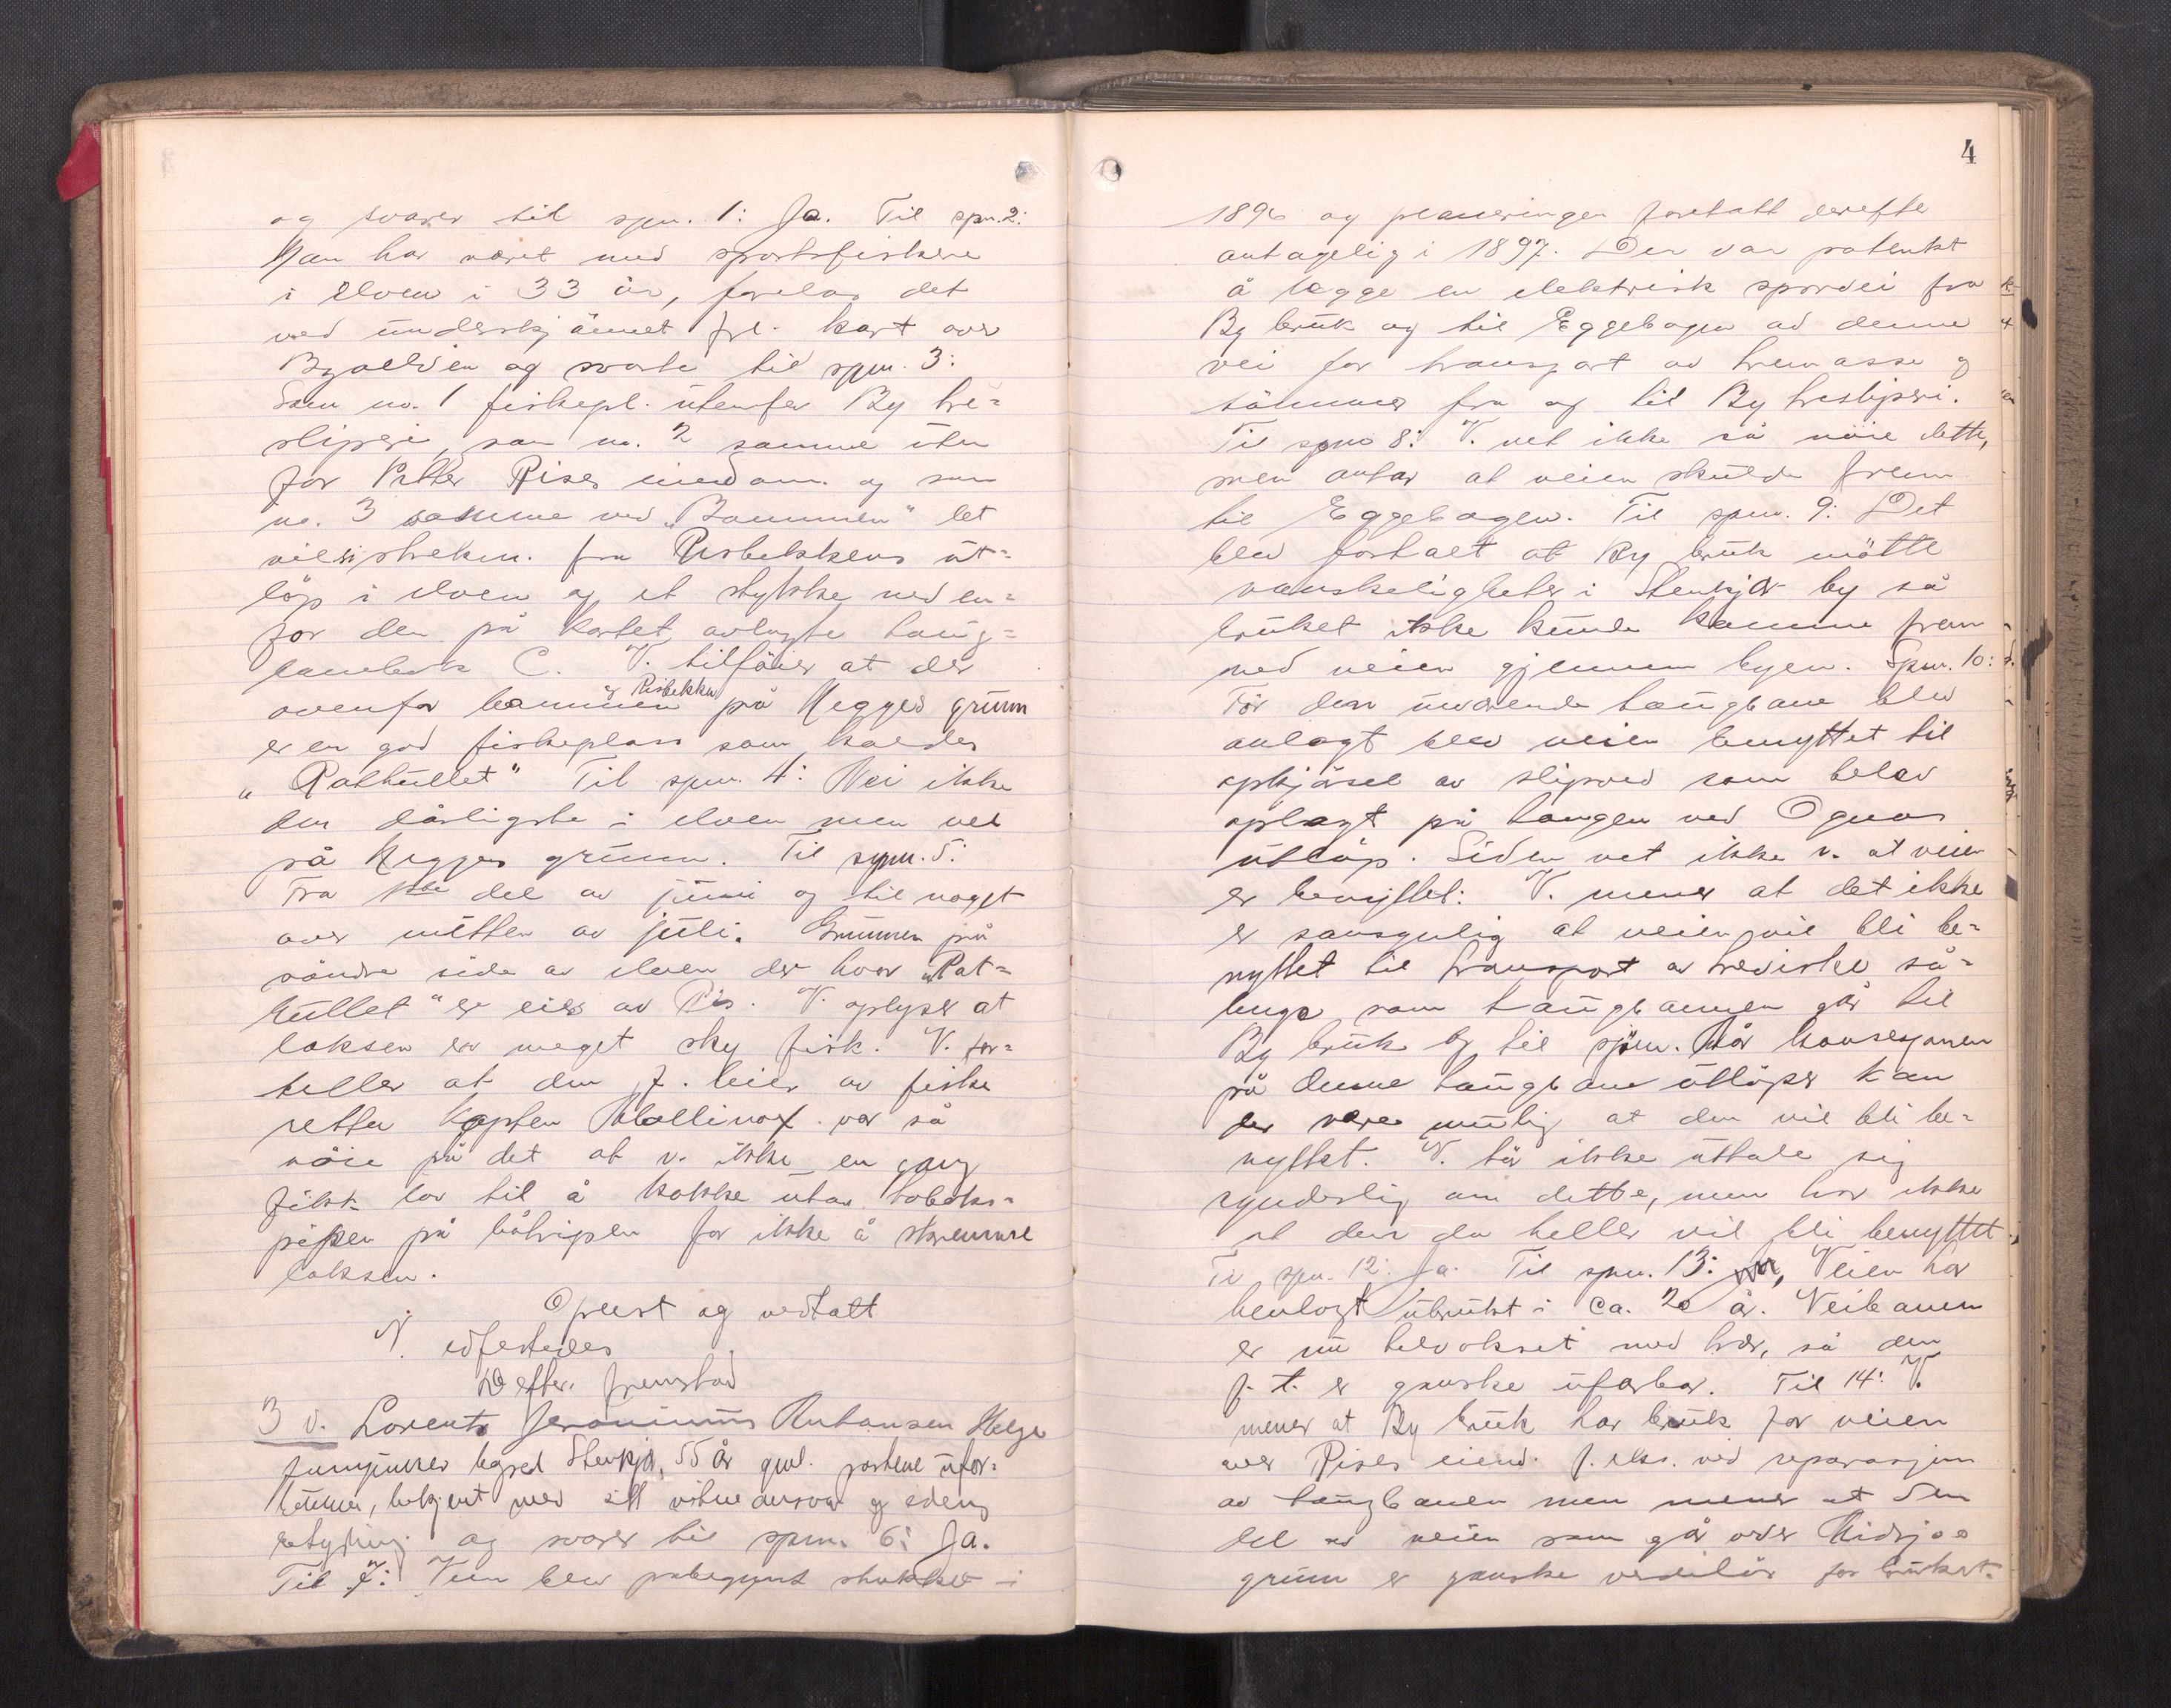 og svarer til spm. 1: Ja. Til spm. 2:
Han har været med sportsfiskere
i elven i 33 år, forelas det
ved underskjönnet frl. kart over
Byaelven og svarte til spm. 3:
Som no. 1 fiskepl. utenfor By tre-
sliperi, som no. 2 samme uten
for Petter Rises eiendom. og som
no. 3 samme ved "Bommen" det
vil si streken. fra Risbekkens ut-
löp i elven og et stykke neden-
for den på kartet avlagte taug-
banebukk C. V. tilföier at der
ovenfor bommen og Risbekken på Hegges grunn
er en god fiskeplass som kaldes
"Rathullet" Til spm. 4: Nei ikke
den dårligste i elven men vel
på Hegges grunn. Til spm. 5:
Fra 1ste del av juni og til noget
over mitten av juli. Grunnen på
söndre side av elven der hvor "Rat-
hullet" er eies av Ris. V. oplyser at
laksen er meget sky fisk. V. for-
teller at den f. leier av fiske
retten kaptein var så
nöie på det at v. ikke en gang
fikk lov til å kakke ut av tobaks-
pipen på båtripen for ikke å skremme
laksen.
Oplest og vedtatt
V. edfestedes
Derefter fremstod
3 v. Lorents Jeronimus Antonsen Helge
bopæl Stenkjær, 55 år gml. partene ufor-
bunnen, bekjent med sitt vitneansvar og edens
betydning og svarer til spm. 6: Ja.
Til 7: Veien blev påbegynt stukket i
4
1896 og planeringen foretatt derefter
antagelig i 1897. Den var påtenkt
å legge en elektrisk sporvei fra
By bruk og til Eggebogen ad denne
vei for transport av tremasse og
tömmer fra og til By tresliperi.
Til spm 8: V. vet ikke så nöie dette,
men antar at veien skulde frem
til Eggebogen. Til spm. 9: Det
blev fortalt at By bruk mötte
vanskeligheter i Stenkjær by så
bruket ikke kunde komme frem
med veien gjennem byen. Spm. 10:
För den nuværende taugbane blev
anlagt blev veien benyttet til
opkjörsel av slipved som blev
oplagt på tangen ved Ognas
utlöp. Siden vet ikke v. at veien
er benyttet: V. mener at det ikke
er sansynlig at veien vil bli be-
nyttet til transport av trevirke så-
lenge som taugbanen går til
By bruk og til sjöen. Når konsesjonen
på denne taugbane utlöper kan
det være mulig at den vil bli be-
nyttet. V. tör ikke uttale sig
synderlig om dette, men tror ikke
at den da heller vil bli benyttet.
Til spm. 12: Ja. Til spm. 13: Veien har
henlagt ubrukt i ca. 20 år. Veibanen
er nu bevokset med trær, så den
f. t. er ganske ufarbar. Til 14: V.
mener at By bruk har bruk for veien
over Rises eiend. f. eks. ved reparasjon
av taugbanen men mener at den
del av veien som går over
grunn er ganske verdilös for bruket.